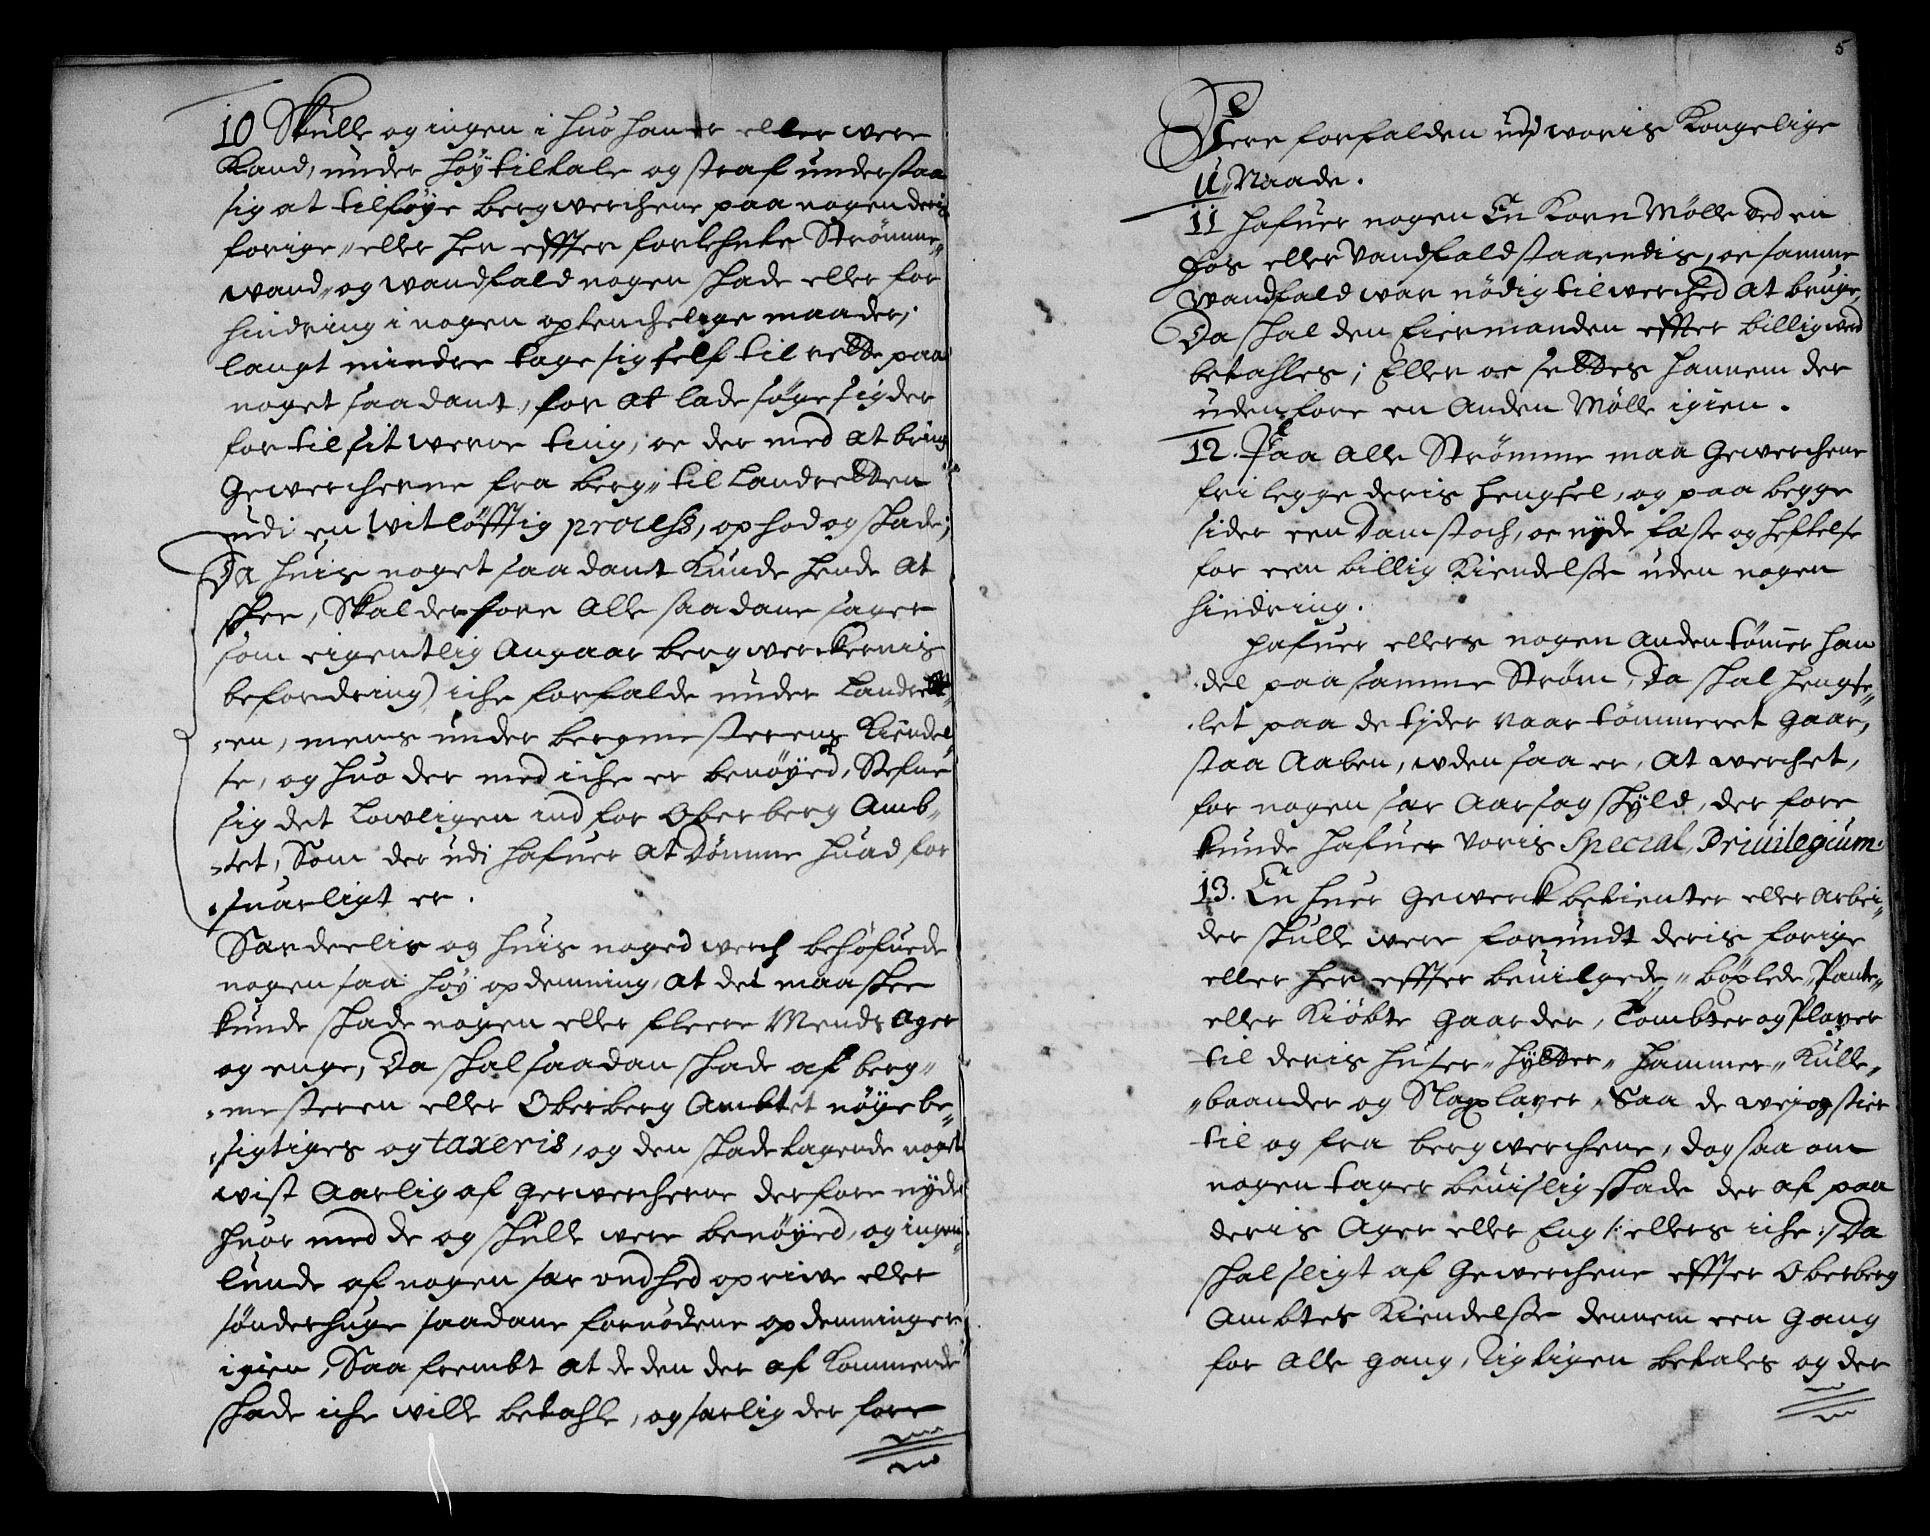 10 Skulle og ingen i huo hand er eller were
Kand, under høy tiltale og straf understaa
sig at tilføye bergwerchene paa nogen deris
forige eller her effter forlehnte Strömme„
wand„ og wandfald nogen skade eller for
hindring i nogen optenchelige maader,
langt mindre tage sig self til rette paa
noget saadant, for at lade søge sig der
for til sit werne ting, oc der med at bring
Gewercherne fra berg„ til Landretten
udi en witløfftig process, ophod og skade;
Da huis noget saadant kunde hende at
skee, Skal derfore Alle saadane sager
som eigentlig Angaar bergwerckernis
befordring) iche forfalde under Landrett„
„en, mens under bergmesterens Kiendel„
se, og huo der med iche er benøyed, Stefne
sig det Lowligen ind for Oberberg Amb„
„tet, Som der udi hafuer at Dømme huad for
„suarligt er.
Særdeelis og huis noged werch behøfuede
nogen saa høy opdemning, at det maa skee
kunde skade nogen eller fleere Mends Ager
og enge, Da skal saadan skade af berg„
„mesteren eller Oberberg Ambtet nøye be„
„sigtiges og taxeris, og den skadetagende noget
wist Aarlig af Gewercherne derfore nyde
huor med de og skulle were benøyed, og ingen„
lunde af nogen sær ondhed oprive eller
sønderhuge saadane fornødene opdemninger
igien, Saa frembt at de den der af kommende
skade iche wille betahle, og særlig der fore
5
Vere forfalden udj woris Kongelige
U„Naade.
11 Hafuer nogen En Korn Mølle ved en
Fos eller Vandfald staaendis, oc samme
wandfald war nödig til werched at bruge,
Da skal den Eiermanden effter billig werd
betahles; Eller oc settes hannem der
udenfore en Anden Mölle igien.
12. Paa Alle Strömme maa Gewerchene
fri legge deris hengsel, og paa begge
sider een Damstoch, oc nyde faste og heftelse
for een billig Kiendelse uden nogen
hindring.
Hafuer ellers nogen Anden tømer han
„del paa samme Ström, Da skal hengse„
„let paa de tyder naar tømmeret gaar,
staa Aaben, uden saa er, At werchet,
for nogen sær Aarsag skyld, der fore
kunde hafuer Voris Special, Priuilegium.
13. En huer Gewerckbetienter eller Arbei„
der skulle were forundt deris forige
eller her effter beuilgede„ böxlede„ Pante„
eller Kiöbte Gaarder, Tombter og Platzer
til deris huser„ hytter„ Hammer„ Kulle„
„baander og Slagplatzer, Saa de wei og stier
til og fra bergwerchene, dog saa om
nogen tager beuislig skade der af paa
deris Ager eller Eng /: ellers iche :/ Da
skal sligt af Gewerchene effter Oberberg
Ambtes Kiendelse dennem een Gang
for Alle gang, Rigtigen betales og der